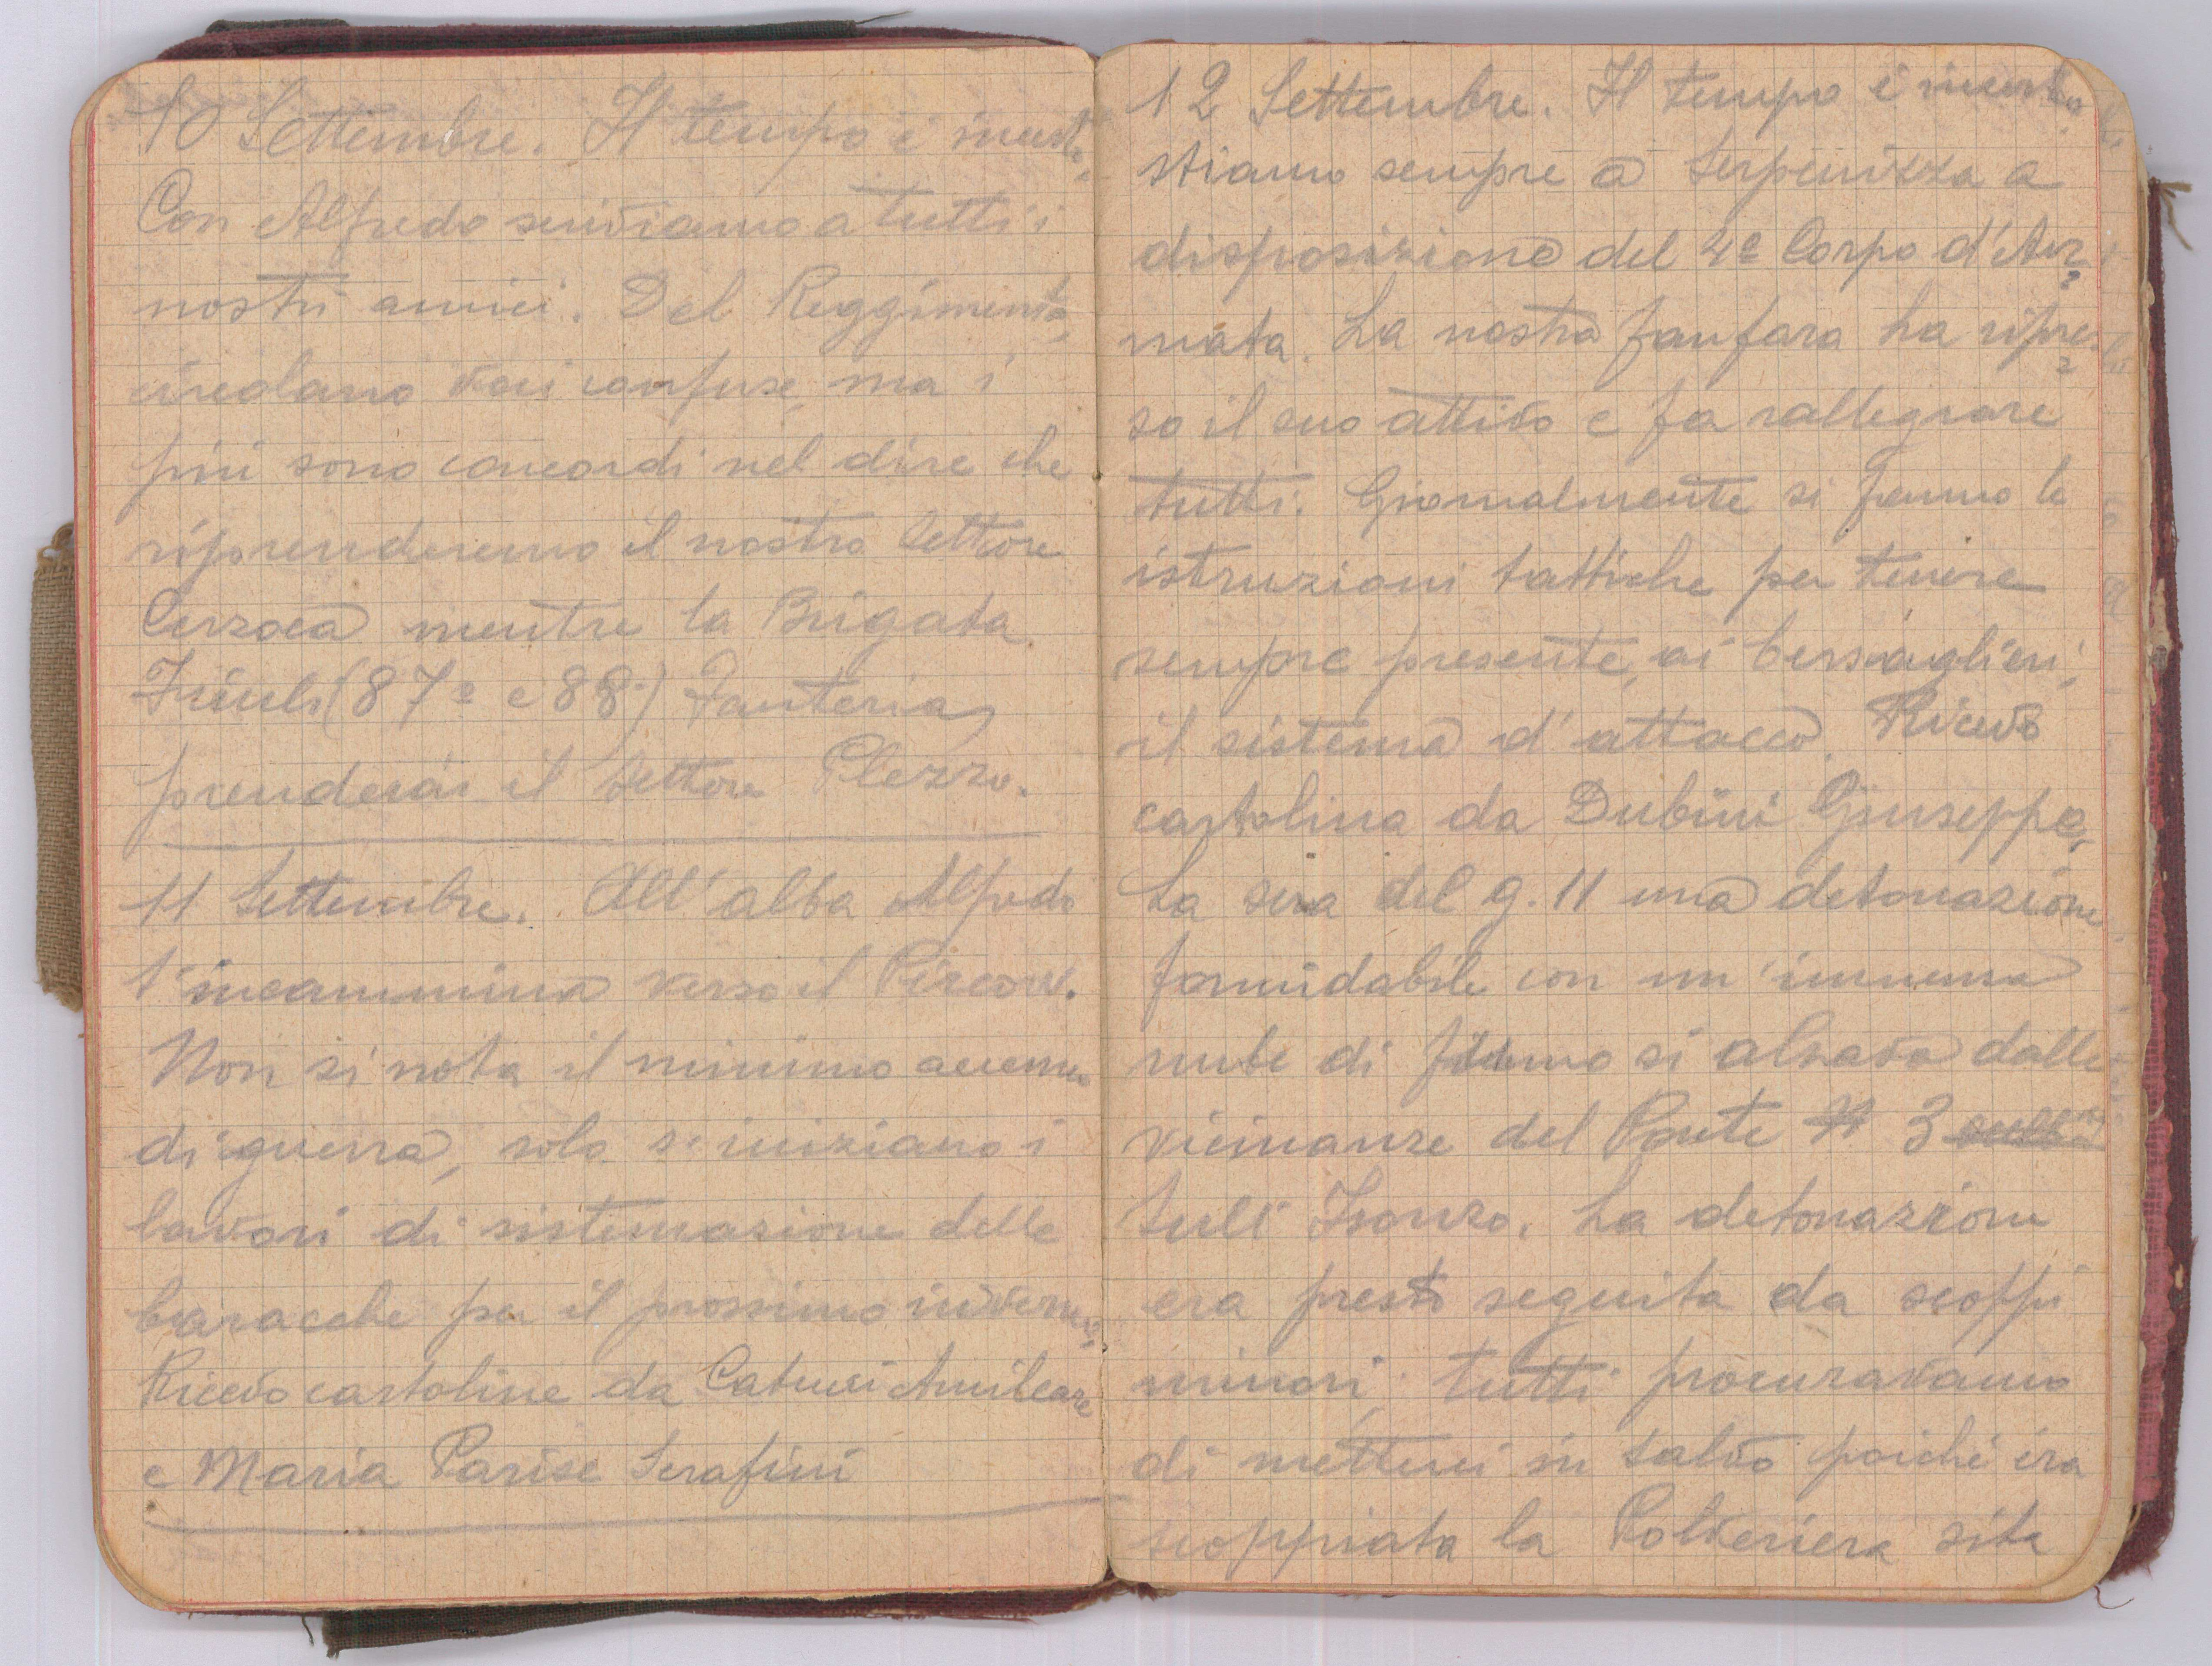 10 Settembre. Il tempo è incerto.
Con Alfredo scriviamo a tutti i
nostri amici. Del Reggimento
circolano voci confuse, ma i
più sono concordi nel dire che
riprenderemo il nostro settore
mentre la Brigata
Friuli (87º e 88º) Fanteria,
prenderà il settore Plezzo.
11 Settembre. All'alba Alfredo
s'incammina verso il
Non si nota il minimo accenno
di guerra, solo si iniziano i
lavori di sistemazione delle
baracche per il prossimo inverno.
Ricevo cartoline da Catucci Amilcare
e Maria Parise Serafini
12 Settembre. Il tempo è incerto.
Stiamo sempre a Serpenizza a
disposizione del 4º Corpo d'Ar=
mata. La nostra fanfara ha ripre=
so il suo attivo e fa rallegrare
tutti. Giornalmente si fanno le
istruzioni tattiche per tenere
sempre presente, ai bersaglieri,
il sistema d'attacco. Ricevo
cartolina da Dubini Giuseppe.
La sera del g. 11 una detonazione
formidabile con un'immensa
nube di fumo si alzava dalle
vicinanze del Ponte 3
sull'Isonzo. La detonazione
era presto seguita da scoppi
minori; tutti procuravamo
di metterci in salvo poichè era
scoppiata la Polveriera sita